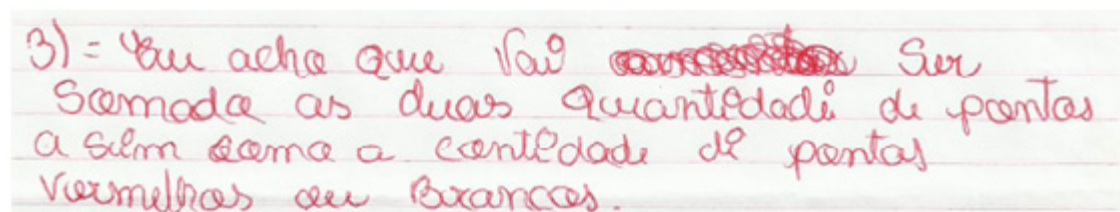 3) = Eu acho que Vai Ser
Somada as duas quantidadi de pontos
a sim como a contidade di pontos
Vermelhos ou Brancos.